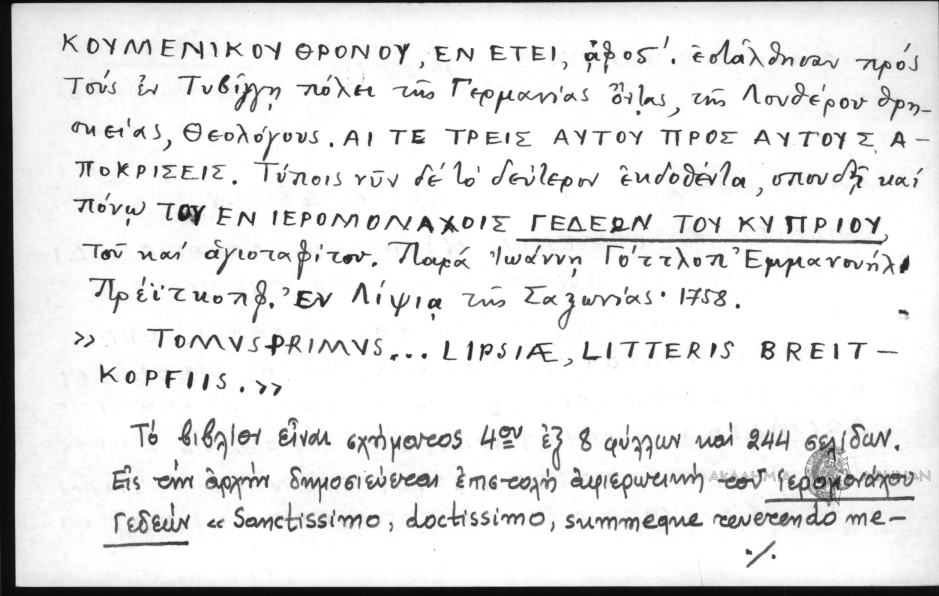 ΚΟΥΜΕΝΙΚΟΥ ΘΡΟΝΟΥ, ΕΝ ΕΤΕΙ, ͵αφος΄. ἐστάλθησαν πρός
τούς ἐν Τυβίγγῃ πόλει τῆς Γερμανίας ὄντας, τῆς Λουθέρου θρη-
σκείας, Θεολόγους. ΑΙ ΤΕ ΤΡΕΙΣ ΑΥΤΟΥ ΠΡΟΣ ΑΥΤΟΥΣ Α-
ΠΟΚΡΙΣΕΙΣ. Τύποις νῦν δέ τό δεύτερον ἐκδοθέντα, σπουδῇ καί
πόνῳ ΤΟΥ ΕΝ ΙΕΡΟΜΟΝΑΧΟΙΣ ΓΕΔΕΩΝ ΤΟΥ ΚΥΠΡΙΟΥ,
τοῦ καί ἁγιοταφίτου. Παρά Ἰωάννῃ Γόττλοπ Ἐμμανουήλ
Πρέϊτκοπφ. Ἐν Λίψιᾳ τῆς Σαξωνίας· 1758.
» TOMVS PRIMVS... LIPSIÆ, LITTERIS BREIT-
KOPFIIS.»
Τό βιβλίον εἶναι σχήματος 4ου ἐξ 8 φύλλων καί 244 σελίδων.
Εἰς τήν ἀρχήν δημοσιεύεται ἐπιστολή ἀφιερωτική τοῦ Ἱερομονάχου
Γεδεών « Sanctissimo, doctissimo, summeque reverendo me-
·/.